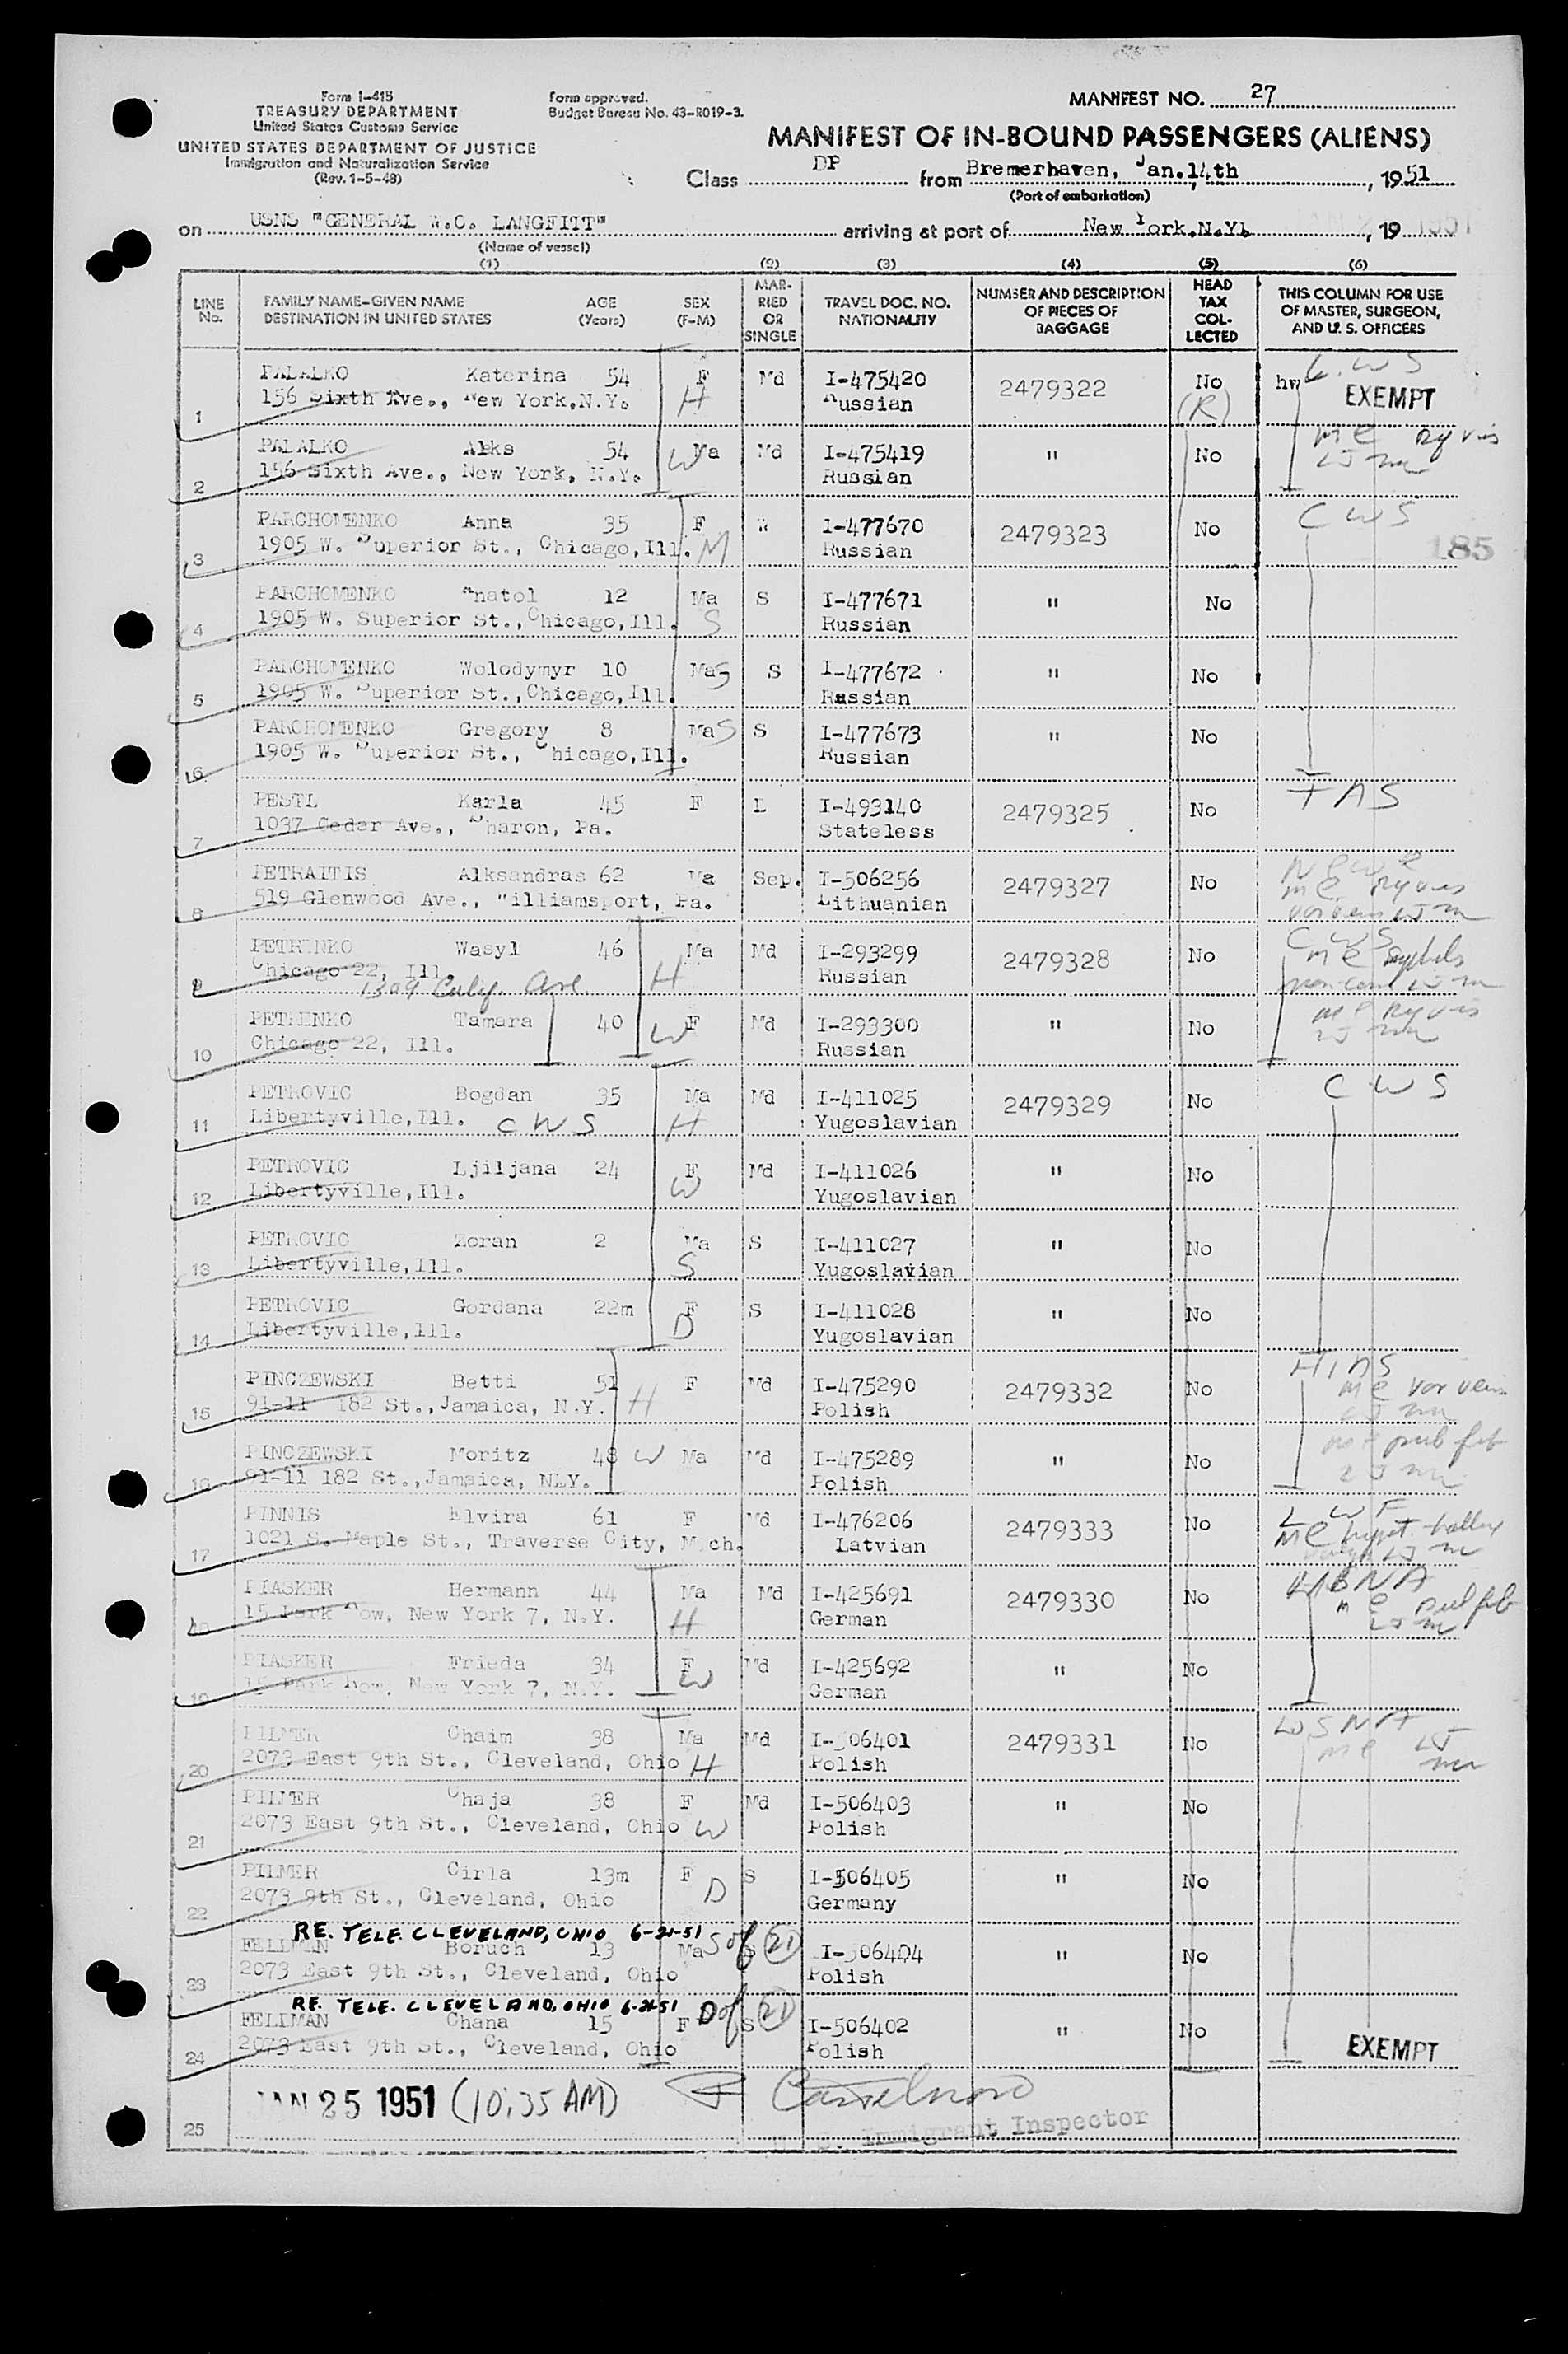 Form I-415
TREASURY DEPARTMENT
United States Customs Service
UNITED STATES DEPARTMENT OF JUSTICE
Immigration and Naturalization Service
(Rev. 1-5-48)
Form approved.
Budget Bureau No. 43-R019-3.
MANIFEST NO. 27
MANIFEST OF IN-BOUND PASSENGERS (ALIENS)
Class DP from Bremerhaven, Jan.14th, 1951
(Port of embarkation)
on USNS "GENERAL W.C. LANGFITT" arriving at port of New York,N.Y., 19 1951
(Name of vessel)
(1) (2) (3) (4) (5) (6)
LINE No. FAMILY NAME-GIVEN NAME DESTINATION IN UNITED STATES AGE (Years) SEX (F-M) MARRIED OR SINGLE TRAVEL DOC. NO. NATIONALITY NUMBER AND DESCRIPTION OF PIECES OF BAGGAGE HEAD TAX COLLECTED THIS COLUMN FOR USE OF MASTER, SURGEON, AND U. S. OFFICERS
1 PALALKO Katerina 54 F Md I-475420 2479322 No hw C.W S
156 Sixth Ave., New York,N.Y. H Russian (R) EXEMPT
2 PALALKO Alks 54 Ma Md I-475419 " No
156 Sixth Ave., New York, N.Y. W Russian
3 PARCHOMENKO Anna 35 F W I-477670 2479323 No C W S
1905 W. Superior St., Chicago,Ill. M Russian 185
4 PARCHOMENKO Anatol 12 Ma S I-477671 " No
1905 W. Superior St.,Chicago,Ill. S Russian
5 PARCHOMENKO Wolodymyr 10 Ma S S I-477672 " No
1905 W. Superior St.,Chicago,Ill. Russian
6 PARCHOMENKO Gregory 8 Ma S S I-477673 " No
1905 W. Superior St., Chicago,Ill. Russian
7 PESTL Karla 45 F D I-493140 2479325 No
1037 Cedar Ave., Sharon, Pa. Stateless
8 PETRAITIS Alksandras 62 Ma Sep. I-506256 2479327 No
519 Glenwood Ave., Williamsport, Pa. Lithuanian
9 PETRENKO Wasyl 46 Ma Md I-293299 2479328 No C W S
Chicago 22, Ill. H Russian
1309 Ave
10 PETRENKO Tamara 40 F Md I-293300 " No
Chicago 22, Ill. W Russian
11 PETROVIC Bogdan 35 Ma Md I-411025 2479329 No C W S
Libertyville,Ill. C W S H Yugoslavian
12 PETROVIC Ljiljana 24 F Md I-411026 " No
Libertyville,Ill. W Yugoslavian
13 PETROVIC Zoran 2 Ma S I-411027 " No
Libertyville,Ill. S Yugoslavian
14 PETROVIC Gordana 22m F S I-411028 " No
Libertyville,Ill. D Yugoslavian
15 PINCZEWSKI Betti 51 F Md I-475290 2479332 No HIAS
91-11 182 St.,Jamaica, N.Y. H Polish
16 PINCZEWSKI Moritz 48 W Ma Md I-475289 " No
91-11 182 St.,Jamaica, N.Y. Polish
17 PINNIS Elvira 61 F Md I-476206 2479333 No L W F
1021 S. Maple St., Traverse City, Mich. Latvian
18 PIASKER Hermann 44 Ma Md I-425691 2479330 No
15 Park Row, New York 7, N.Y. H German
19 PIASKER Frieda 34 F Md I-425692 " No
15 Park Row, New York 7, N.Y. W German
20 PILMER Chaim 38 Ma Md I-506401 2479331 No
2073 East 9th St., Cleveland, Ohio H Polish
21 PILMER Chaja 38 F Md I-506403 " No
2073 East 9th St., Cleveland, Ohio W Polish
22 PILMER Cirla 13m F S I-506405 " No
2073 9th St., Cleveland, Ohio D Germany
RE. TELE. CLEVELAND, OHIO 6-21-51
23 FELDMAN Boruch 13 Ma S of (21) S I-506404 " No
2073 East 9th St., Cleveland, Ohio Polish
RE. TELE. CLEVELAND, OHIO 6-21-51
24 FELDMAN Chana 15 F D of (21) S I-506402 " No
2073 East 9th St., Cleveland, Ohio Polish EXEMPT
25 JAN 25 1951 (10:35 AM)
Immigrant Inspector